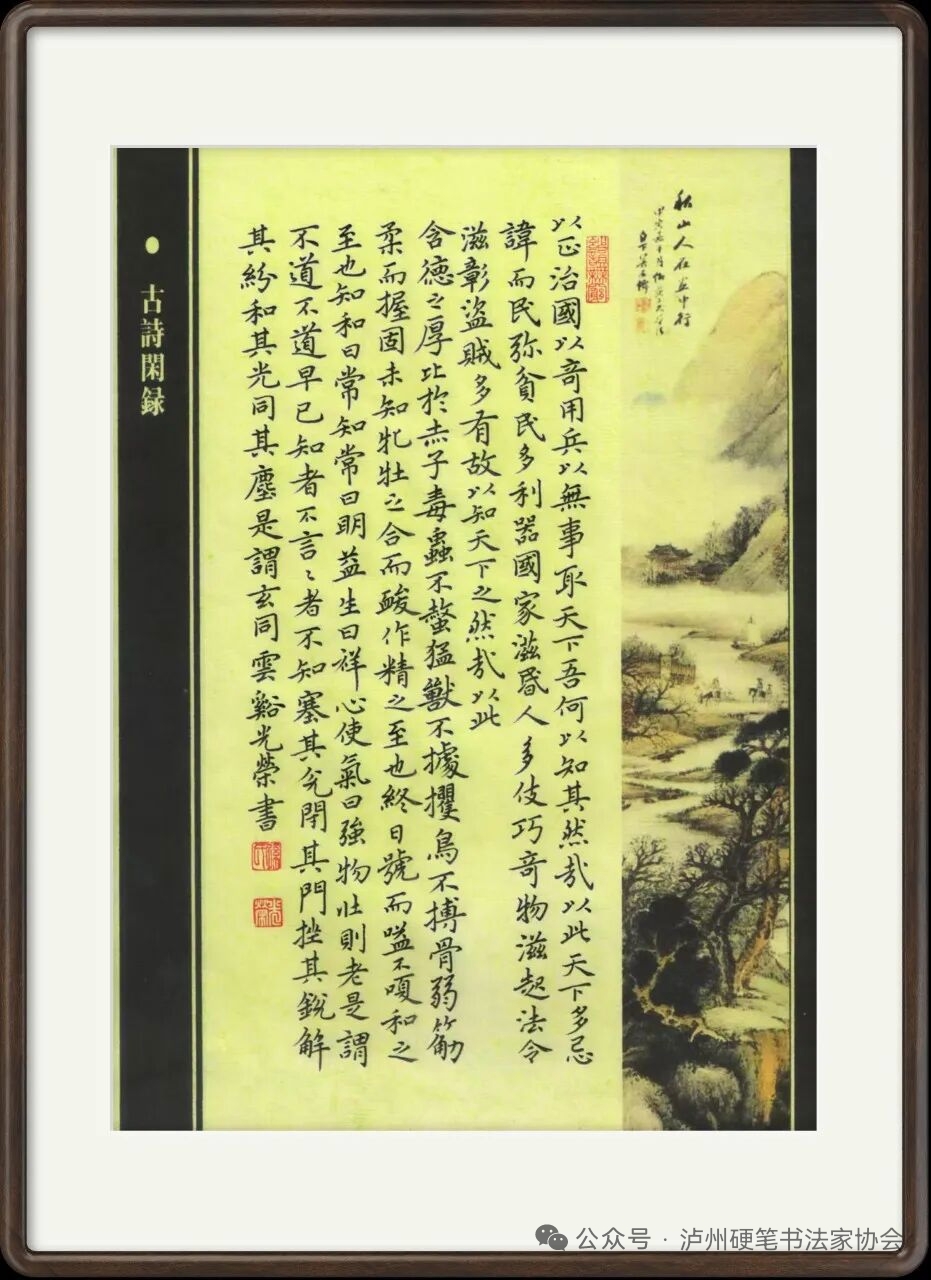 秋山人在畫中行
以正治國以奇用兵以無事取天下吾何以知其然哉以此天下多忌
諱而民弥貧民多利器國家滋昏人多伎巧奇物滋起法令
滋彰盜賊多有故以知天下之然哉以此
含德之厚比於赤子毒蟲不螫猛獸不據攫鳥不搏骨弱筋
柔而握固未知牝牡之合而酸作精之至也終日號而嗌不嗄和之
至也知和曰常知常曰明益生曰祥心使氣曰強物壯則老是謂
不道不道早已知者不言〻者不知塞其兌閉其門挫其銳解
其紛和其光同其塵是謂玄同雲谿光榮書
光榮
古詩閑録
公众号·泸州硬笔书法家协会